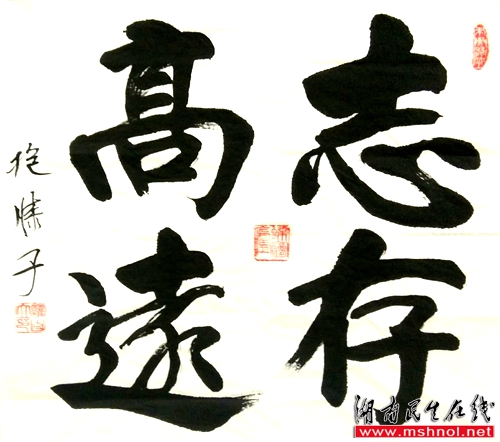 志存
高遠
湖南民生在线
www.mshnol.net